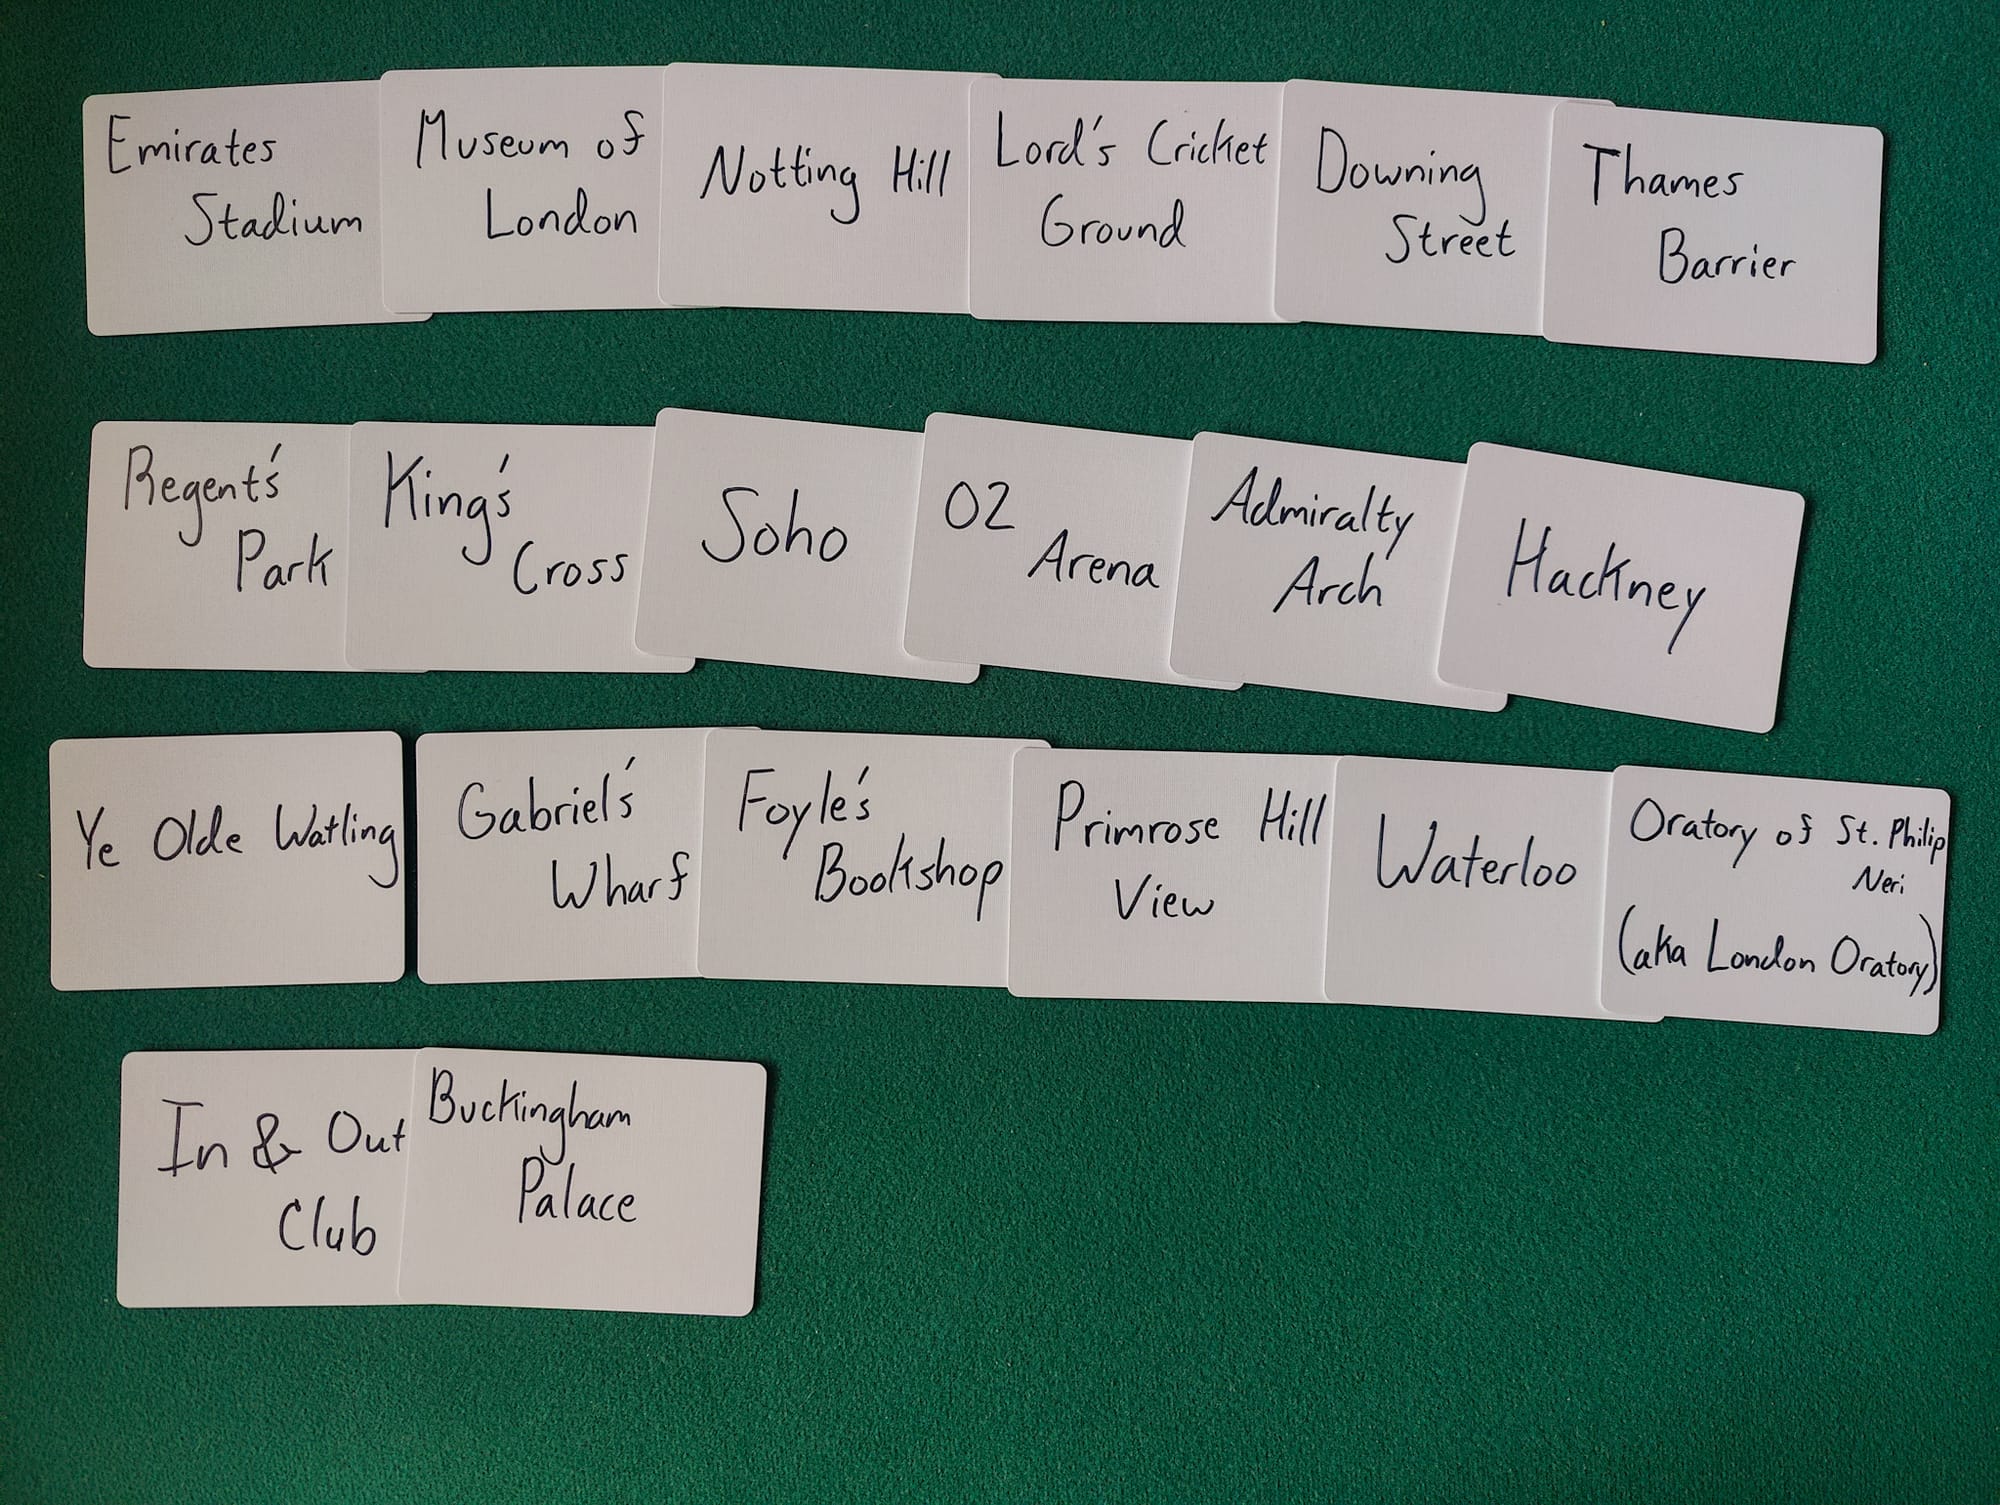 Emirates
Stadium
Museum of
London
Notting Hill
Lord's Cricket
Ground
Downing
Street
Thames
Barrier
Regent's
Park
King's
Cross
Soho
O2
Arena
Admiralty
Arch
Hackney
Ye Olde Watling
Gabriel's
Wharf
Foyle's
Bookshop
Primrose Hill
View
Waterloo
Oratory of St. Philip
Neri
(aka London Oratory)
In & Out
Club
Buckingham
Palace